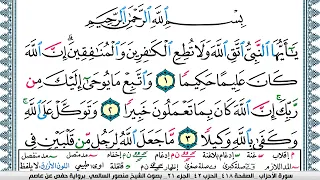 بِسْمِ ٱللَّهِ ٱلرَّحْمَٰنِ ٱلرَّحِيمِ
يَٰٓأَيُّهَا ٱلنَّبِىُّ ٱتَّقِ ٱللَّهَ وَلَا تُطِعِ ٱلْكَٰفِرِينَ وَٱلْمُنَٰفِقِينَ إِنَّ ٱللَّهَ
كَانَ عَلِيمًا حَكِيمًا ١ وَٱتَّبِعْ مَا يُوحَىٰٓ إِلَيْكَ مِن
رَّبِّكَ إِنَّ ٱللَّهَ كَانَ بِمَا تَعْمَلُونَ خَبِيرًا ٢ وَتَوَكَّلْ عَلَى ٱللَّهِ
وَكَفَىٰ بِٱللَّهِ وَكِيلًا ٣ مَّا جَعَلَ ٱللَّهُ لِرَجُلٍ مِّن قَلْبَيْنِ فِى
سورة الأحزاب . الصفحة ٤١٨ الجزء ٢١ . بصوت الشيخ منصور السالمي . برواية حفص عن عاصم